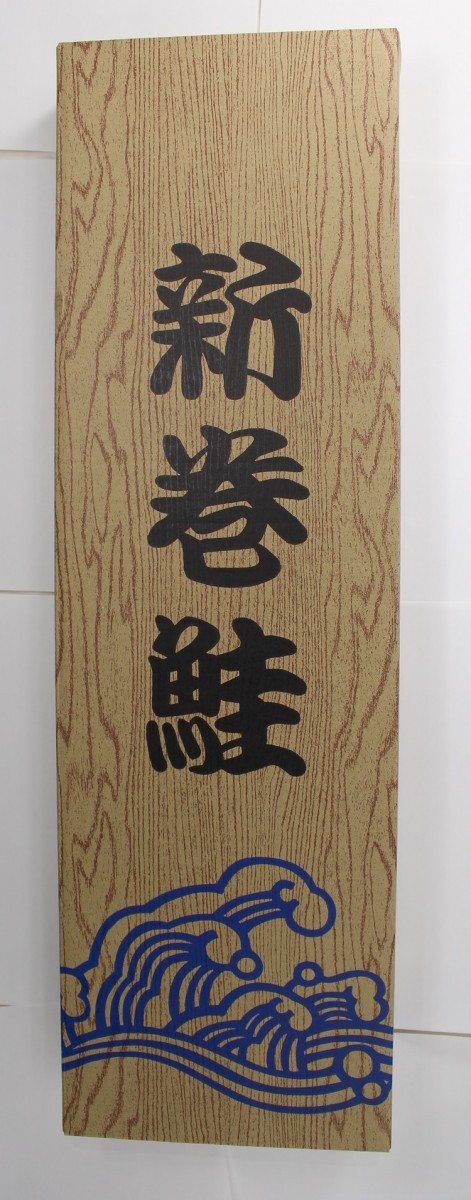 新巻鮭